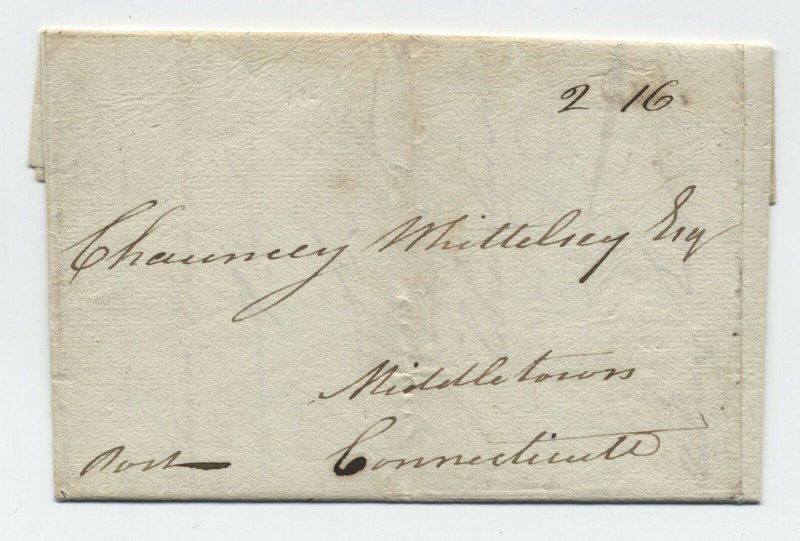 2 16
Chauncey Whittelsey Esq
Middletown
Connecticutt
Post